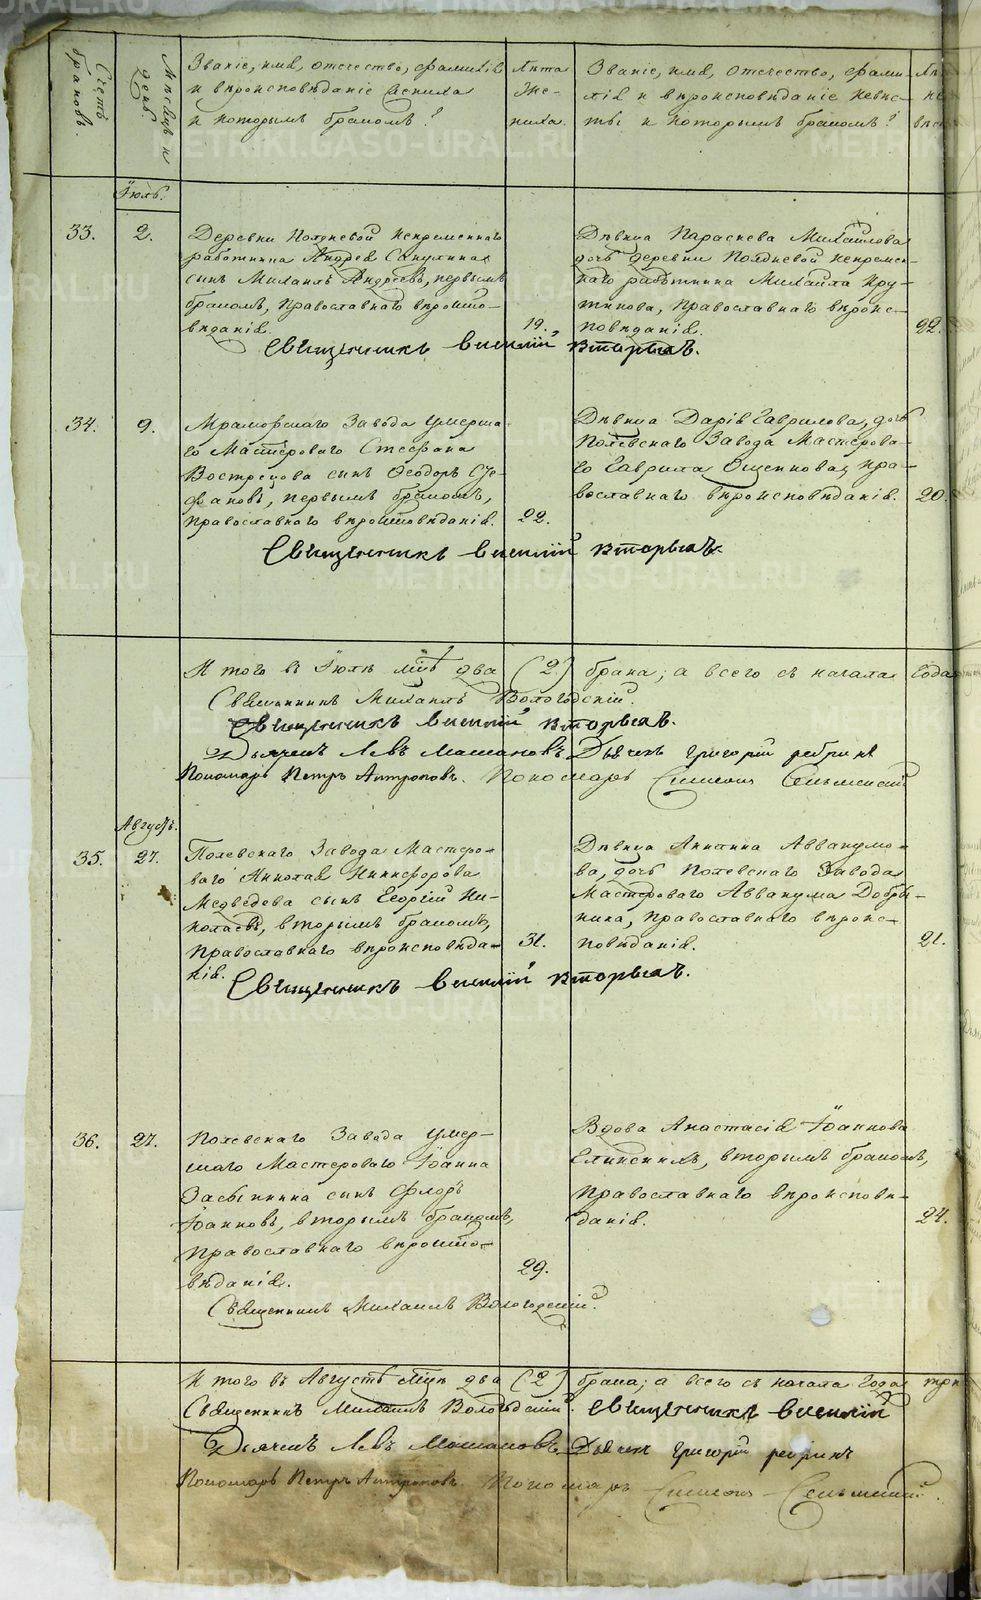 Счетъ браковъ.
Мѣсяцъ и день.
Званіе, имя, отечество, фамилія
и вѣроисповѣданіе жениха
и которымъ бракомъ?
Лѣта
же-
ниха.
Званіе, имя, отечество, фами-
лія и вѣроисповѣданіе невѣс-
ты и которымъ бракомъ?
Іюль.
33.
2.
Деревни Полдневой непременнаго
работника Андрея
сынъ Михаилъ Андреевъ, первымъ
бракомъ, православнаго вѣроиспо-
вѣданія.
19.
Дѣвица Параскева Михайлова
дочь деревни Полдневой непремен-
наго работника Михаила Кру-
тикова, православнаго вѣроис-
повѣданія.
22.
Священникъ Василій Вторыхъ.
34.
9.
Мраморскаго Завода умерша-
го Мастероваго Стефана
Вострецова сынъ Ѳеодоръ Сте-
фановъ, первымъ бракомъ,
православнаго вѣроисповѣданія.
22.
Дѣвица Дарія Гаврилова, дочь
Полевскаго Завода Мастерова-
го Гаврила православнаго вѣроисповѣданія.
20.
Священникъ Василій Вторыхъ.
Итого въ Іюлѣ мцѣ два (2) брака; а всего съ начала года
Священникъ Михаилъ Вологодскій.
Священникъ Василій Вторыхъ.
Дьячекъ Левъ Дьячекъ Григорій
Пономарь Петръ Антроповъ. Пономарь Симеонъ
Августъ.
35.
27.
Полевскаго Завода Мастеро-
ваго Николая Никифорова
Медведева сынъ Георгій Ни-
колаевъ, вторымъ бракомъ,
православнаго вѣроисповѣда-
нія.
31.
Дѣвица Аввакумо-
ва, дочь Полевскаго Завода
Мастероваго Аввакума Добры-
нина, православнаго вѣроис-
повѣданія.
21.
Священникъ Василій Вторыхъ.
36.
27.
Полевскаго Завода умер-
шаго Мастероваго Іоанна
Засыпкина сынъ Флоръ
Іоанновъ, вторымъ бракомъ,
православнаго вѣроиспо-
вѣданія.
29.
Вдова Анастасія Іоаннова
вторымъ бракомъ,
православнаго вѣроисповѣ-
данія.
24.
Священникъ Михаилъ Вологодскій.
Итого въ Августѣ мцѣ два (2) брака; а всего съ начала года три
Священникъ Михаилъ Вологодскій. Священникъ Василій
Дьячекъ Левъ Дьячекъ Григорій
Пономарь Петръ Антроповъ. Пономарь Симеонъ
METRIKI.GASO-URAL.RU